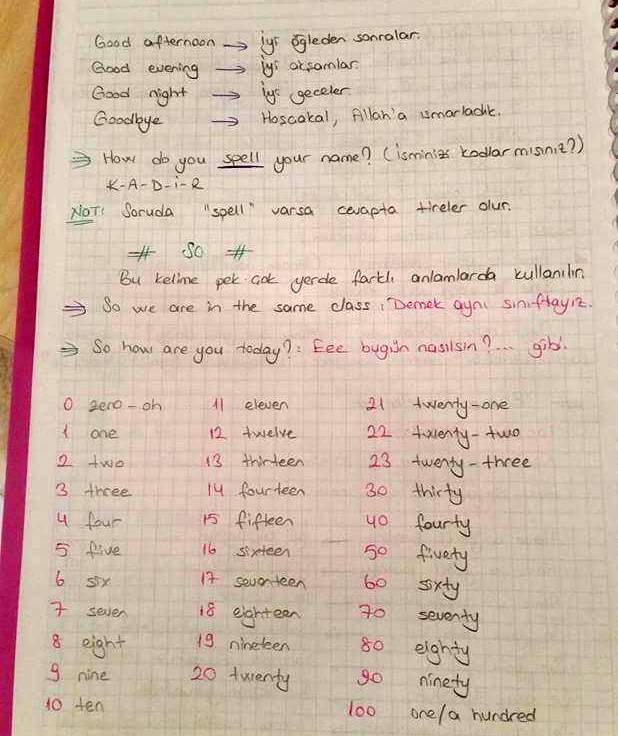 Good afternoon → İyi öğleden sonralar.
Good evening → İyi akşamlar.
Good night → İyi geceler
Goodbye → Hoşçakal, Allah'a ısmarladık.
⇒ How do you spell your name? (İsminizi kodlar mısınız?)
K-A-D-İ-R
NOT: Soruda "spell" varsa cevapta tireler olur.
# SO #
Bu kelime pek çok yerde farklı anlamlarda kullanılır.
⇒ So we are in the same class : Demek aynı sınıftayız.
⇒ So how are you today? : Eee bugün nasılsın?... gibi.
0 zero - oh 11 eleven 21 twenty-one
1 one 12 twelve 22 twenty-two
2 two 13 thirteen 23 twenty-three
3 three 14 fourteen 30 thirty
4 four 15 fifteen 40 fourty
5 five 16 sixteen 50 fivety
6 six 17 seventeen 60 sixty
7 seven 18 eighteen 70 seventy
8 eight 19 nineteen 80 eighty
9 nine 20 twenty 90 ninety
10 ten 100 one/a hundred